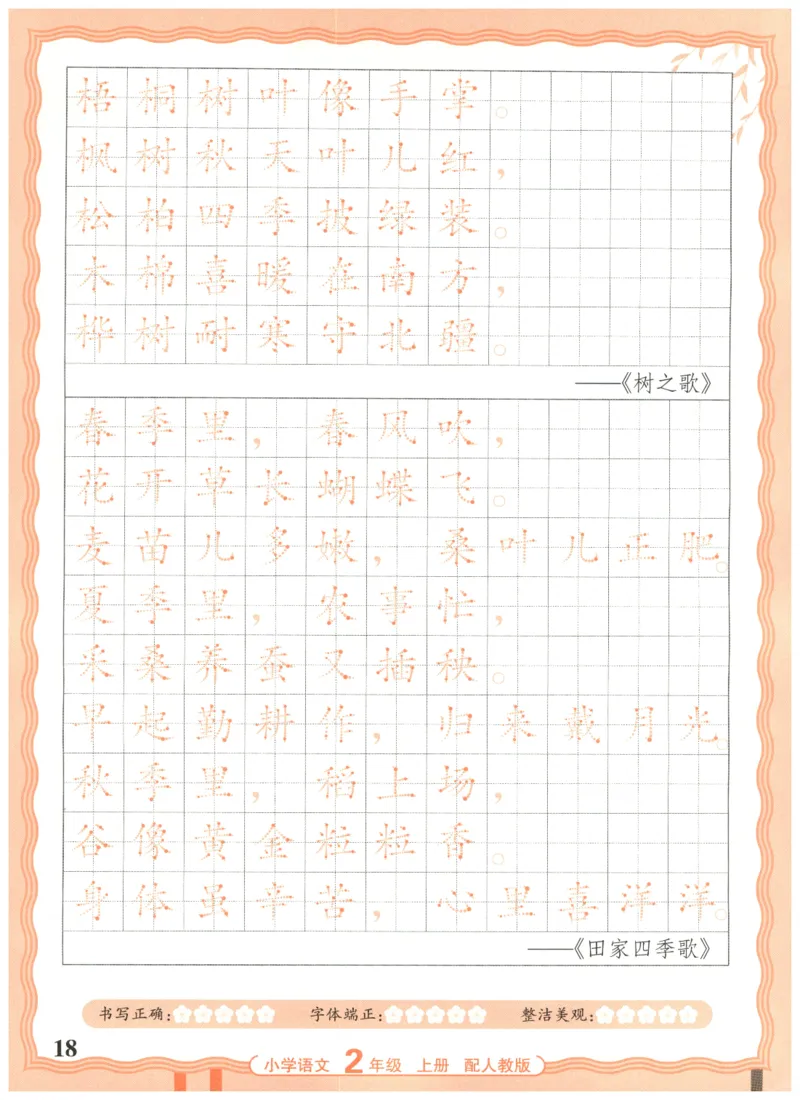 梧桐树叶像手掌。
枫树秋天叶儿红，
松柏四季披绿装。
木棉喜暖在南方，
桦树耐寒守北疆。
——《树之歌》
春季里，春风吹，
花开草长蝴蝶飞。
麦苗儿多嫩，桑叶儿正肥。
夏季里，农事忙，
采桑养蚕又插秧。
早起勤耕作，归来戴月光。
秋季里，稻上场，
谷像黄金粒粒香。
身体虽辛苦，心里喜洋洋。
——《田家四季歌》
书写正确： 字体端正： 整洁美观：
18
小学语文 2年级 上册 配人教版